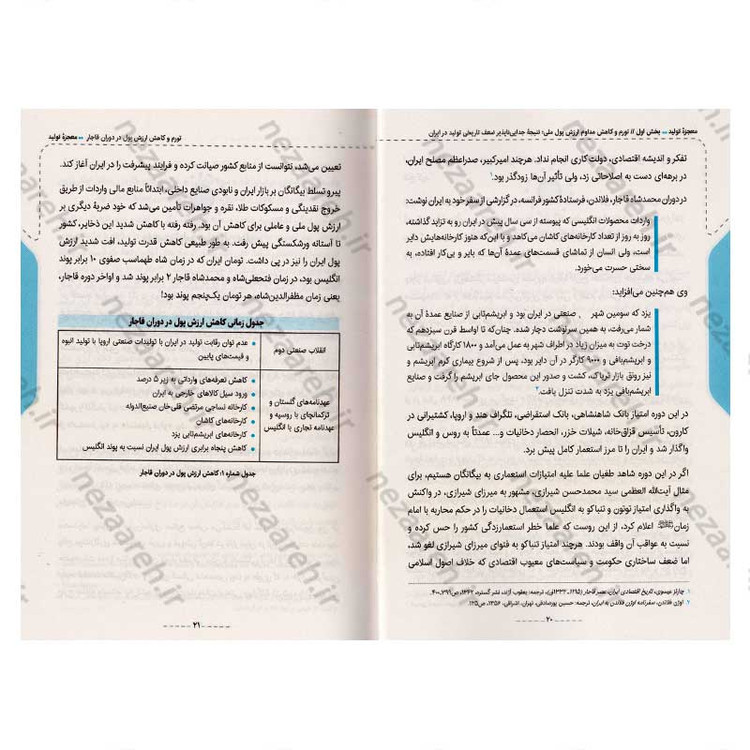 معجزهٔ تولید •• بخش اول // تورم و کاهش مداوم ارزش پول ملی؛ نتیجهٔ جدایی‌ناپذیر ضعف تاریخی تولید در ایران
تفکر و اندیشه اقتصادی، دولت کاری انجام نداد. هرچند امیرکبیر، صدراعظم مصلح ایران،
در برهه‌ای دست به اصلاحاتی زد، ولی تأثیر آن‌ها زودگذر بود.
در دوران محمدشاه قاجار، فلاندن، فرستادهٔ کشور فرانسه، در گزارشی از سفر خود به ایران نوشت:
واردات محصولات انگلیسی که پیوسته از سی سال پیش در ایران رو به تزاید گذاشته،
روز به روز از تعداد کارخانه‌های کاشان می‌کاهد و با این‌که هنوز کارخانه‌هایش دایر
است، ولی انسان از تماشای قسمت‌های عمدهٔ آن‌ها که بایر و بی‌کار افتاده، به
سختی حسرت می‌خورد.
وی هم‌چنین می‌افزاید:
یزد که سومین شهر صنعتی در ایران بود و ابریشم‌تابی از صنایع عمدهٔ آن به
شمار می‌رفت، به همین سرنوشت دچار شده. چنان‌که تا اواسط قرن سیزدهم که
درخت توت به میزان زیاد در اطراف شهر به عمل می‌آمد و ۱۸۰۰ کارگاه ابریشم‌تابی
و ابریشم‌بافی و ۹۰۰۰ کارگر در آن دایر بود، پس از شروع بیماری کرم ابریشم و
نیز رونق بازار تریاک، کشت و صدور این محصول جای ابریشم را گرفت و صنایع
ابریشم‌بافی یزد به شدت تنزل یافت.۲
در این دوره امتیاز بانک شاهنشاهی، بانک استقراضی، تلگراف هند و اروپا، کشتیرانی در
کارون، تأسیس قزاق‌خانه، شیلات خزر، انحصار دخانیات و... عمدتاً به روس و انگلیس
واگذار شد و ایران را تا مرز استعمار کامل پیش برد.
اگر در این دوره شاهد طغیان علما علیه امتیازات استعماری به بیگانگان هستیم، برای
مثال آیت‌الله العظمی سید محمدحسن شیرازی، مشهور به میرزای شیرازی، در واکنش
به واگذاری امتیاز توتون و تنباکو به انگلیس استعمال دخانیات را در حکم محاربه با امام
زمان اعلام کرد، از این روست که علما خطر استعمارزدگی کشور را حس کرده و
نسبت به عواقب آن واقف بودند. هرچند امتیاز تنباکو به فتوای میرزای شیرازی لغو شد،
اما ضعف ساختاری حکومت و سیاست‌های معیوب اقتصادی که خلاف اصول اسلامی
۱ چارلز عیسوی، تاریخ اقتصادی ایران، عصر قاجار ترجمه: یعقوب آژند، نشر گستره، ۱۳۶۲،
۲ اوژن فلاندن، سفرنامه اوژن فلاندن به ایران، ترجمه: حسین نورصادقی، تهران، اشراقی، ۱۳۵۶، ص۱۲۵.
۲۰
تورم و کاهش ارزش پول در دوران قاجار •• معجزهٔ تولید
تعیین می‌شد، نتوانست از منابع کشور صیانت کرده و فرایند پیشرفت را در ایران آغاز کند.
پیرو تسلط بیگانگان بر بازار ایران و نابودی صنایع داخلی، ابتدائاً منابع مالی واردات از طریق
خروج نقدینگی و مسکوکات طلا، نقره و جواهرات تأمین می‌شد که خود ضربهٔ دیگری بر
ارزش پول ملی و عاملی برای کاهش آن بود. رفته رفته با کاهش شدید این ذخایر، کشور
تا آستانه ورشکستگی پیش رفت. به طور طبیعی کاهش قدرت تولید، افت شدید ارزش
پول ایران را نیز در پی داشت. تومان ایران که در زمان شاه طهماسب صفوی ۱۰ برابر پوند
انگلیس بود، در زمان فتحعلی‌شاه و محمدشاه قاجار ۲ برابر پوند شد و اواخر دوره قاجار،
یعنی زمان مظفرالدین‌شاه، هر تومان یک‌پنجم پوند بود!
جدول زمانی کاهش ارزش پول در دوران قاجار
انقلاب صنعتی دوم
• عدم توان رقابت تولید در ایران با تولیدات صنعتی اروپا با تولید انبوه
و قیمت‌های پایین
عهدنامه‌های گلستان و
ترکمانچای با روسیه و
عهدنامه تجاری با انگلیس
• کاهش تعرفه‌های وارداتی به زیر ۵ درصد
• ورود سیل کالاهای خارجی به ایران
• کارخانه نساجی مرتضی قلی‌خان صنیع‌الدوله
• کارخانه‌های کاشان
• کارخانه‌های ابریشم‌تابی یزد
• کاهش پنجاه برابری ارزش پول ایران نسبت به پوند انگلیس
جدول شماره ۱: کاهش ارزش پول در دوران قاجار
۲۱
nezaareh.ir